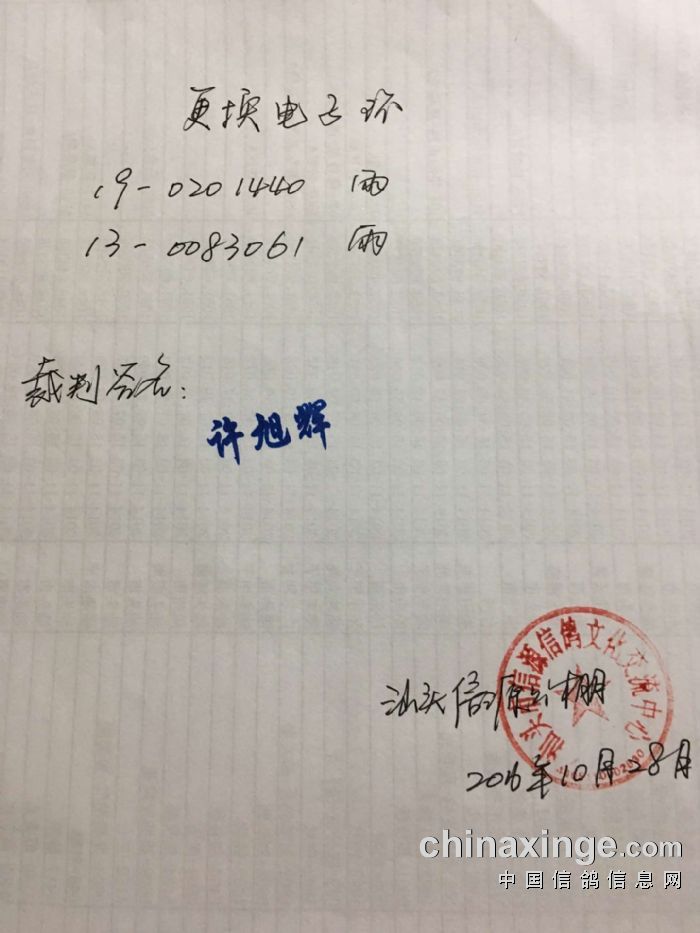 更换电子环
19-0201440 雨
13-0083061 雨
裁判签名:
许旭辉
汕头市信源信鸽文化交流中心
汕头信源公棚
2016年10月28日
chinaxinge.com
中国信鸽信息网